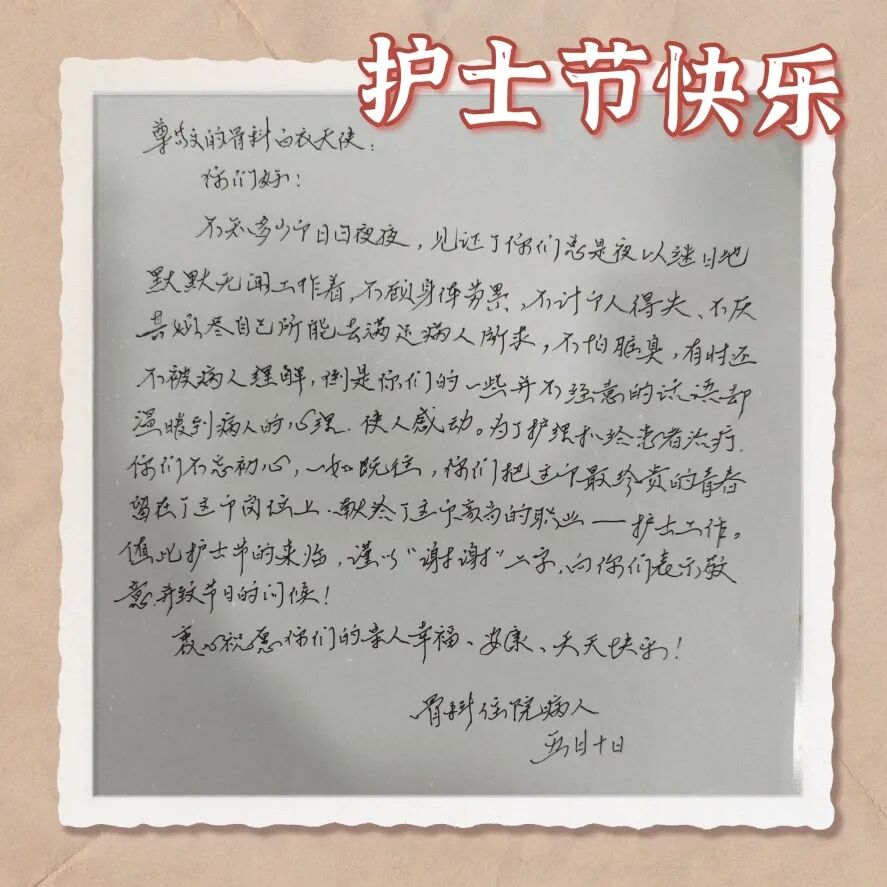 护士节快乐
尊敬的骨科白衣天使：
你们好！
不知多少个日日夜夜，见证了你们总是夜以继日地
默默无闻工作着，不顾身体劳累、不计个人得失、不厌
其烦尽自己所能去满足病人所求，不怕脏臭，有时还
不被病人理解，倒是你们的一些并不经意的话语却
温暖到病人的心理．使人感动。为了护理和给患者治疗．
你们不忘初心，一如既往，你们把这个最珍贵的青春
留在了这个岗位上．献给了这个崇高的职业——护士工作。
值此护士节的来临，谨以“谢谢”二字．向你们表示敬
意．并致节日的问候！
衷心祝愿你们的亲人幸福、安康、天天快乐！
骨科住院病人
五月十日